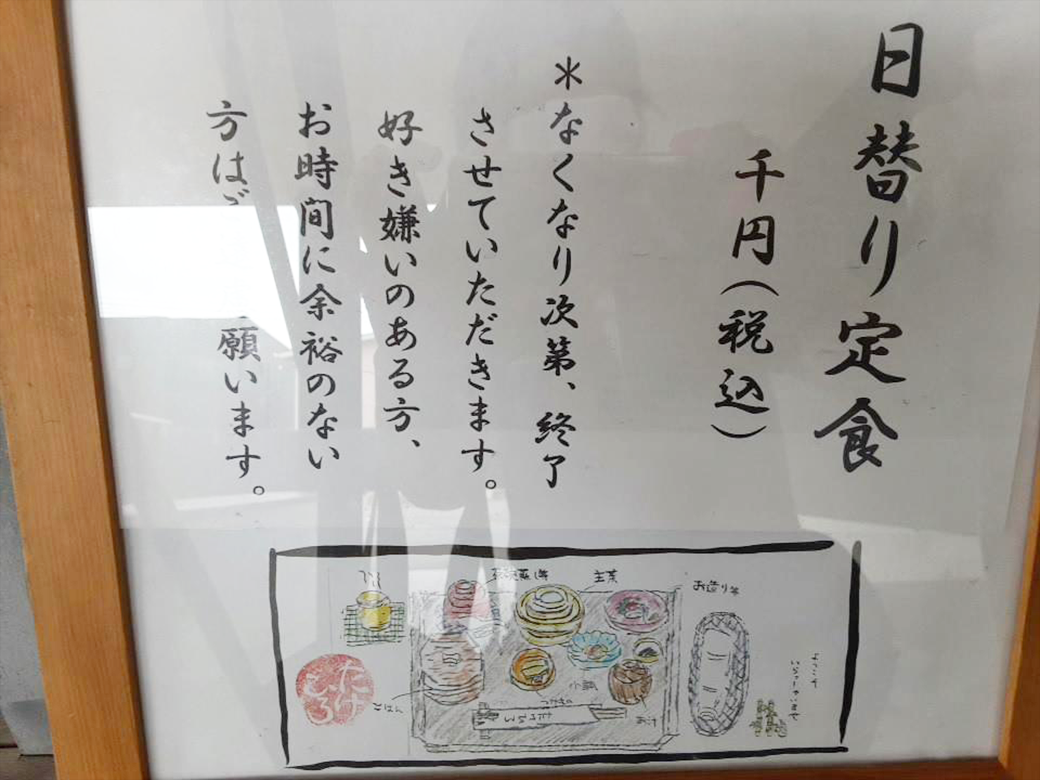 日替り定食
千円（税込）
＊なくなり次第、終了
させていただきます。
好き嫌いのある方、
お時間に余裕のない
方はご願います。
お造り等
主菜
小鉢
つけもの
お汁
ごはん
ようこそ
いらっしゃいませ